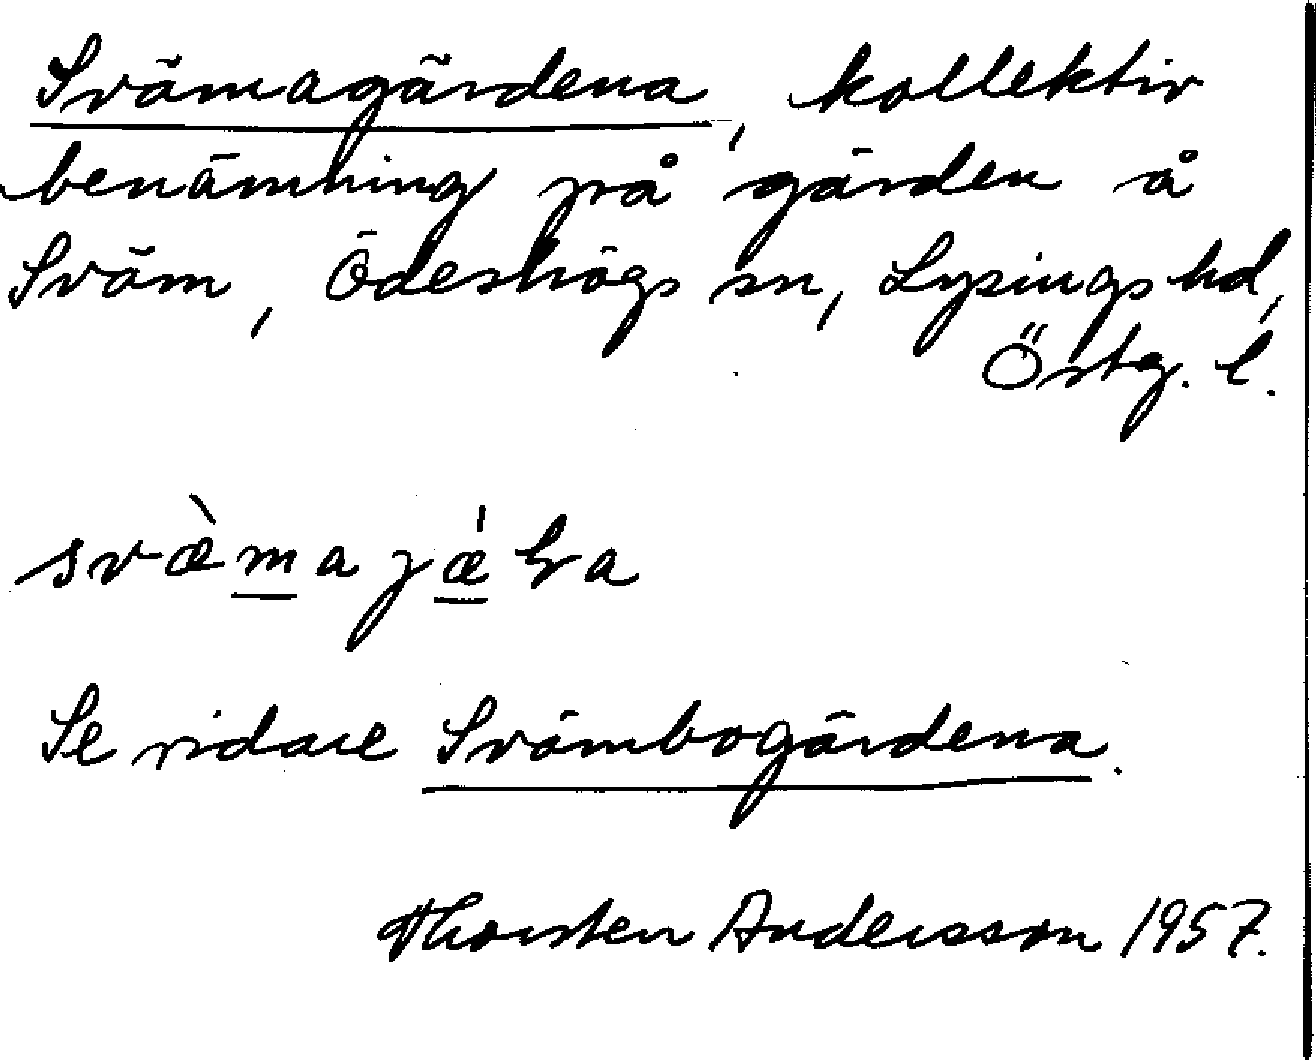 Svämagärdena, kollektiv
benämning på gärden å
Sväm, Ödeshögs sn, Lysings hd,
Östg. l.
Se vidare Svämbogärdena.
Thorsten Andersson 1957.